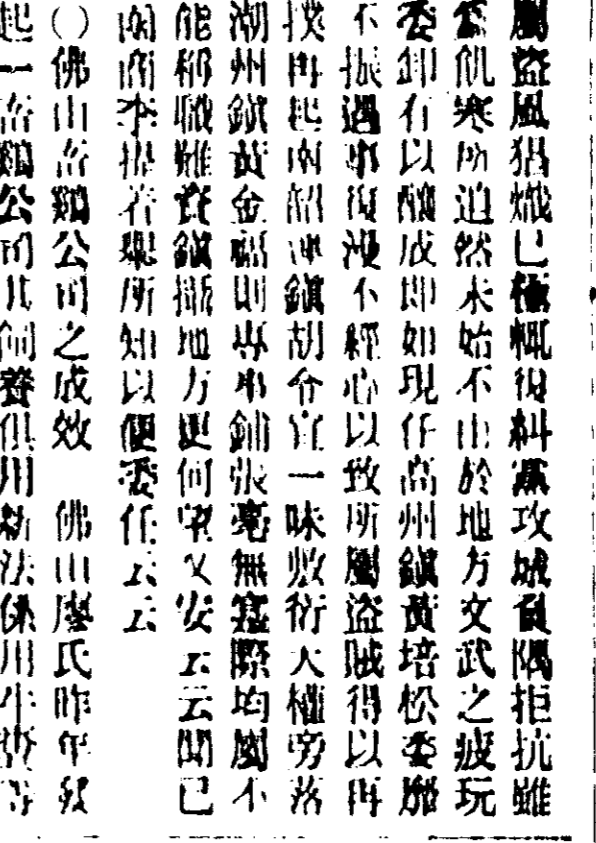 屬盜風猖熾已極輒復糾黨攻城負隅拒抗雖
爲飢寒所迫然未始不由於地方文武之疲玩
委卸有以釀成即如現任高州鎭黃培松委靡
不振遇事復漫不經心以致所屬盜賊得以再
撲再起南韶連鎭胡令宣一味敷衍大權旁落
潮州鎭黃金福則專事鋪張毫無實際均屬不
能稱職雖資鎭撫地方更何望乂安云云聞已
商李提若現所知以便委任云云
()佛山畜鷄公司之成效 佛山廖氏昨年
起一畜鷄公司其飼養俱用新法